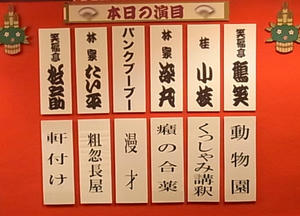 本日の演目
笑福亭 鶴笑
動物園
桂 小枝
くっしゃみ講釈
林家 染丸
癪の合薬
パンクブーブー
漫才
林家 たい平
粗忽長屋
笑福亭 哲之助
軒付け